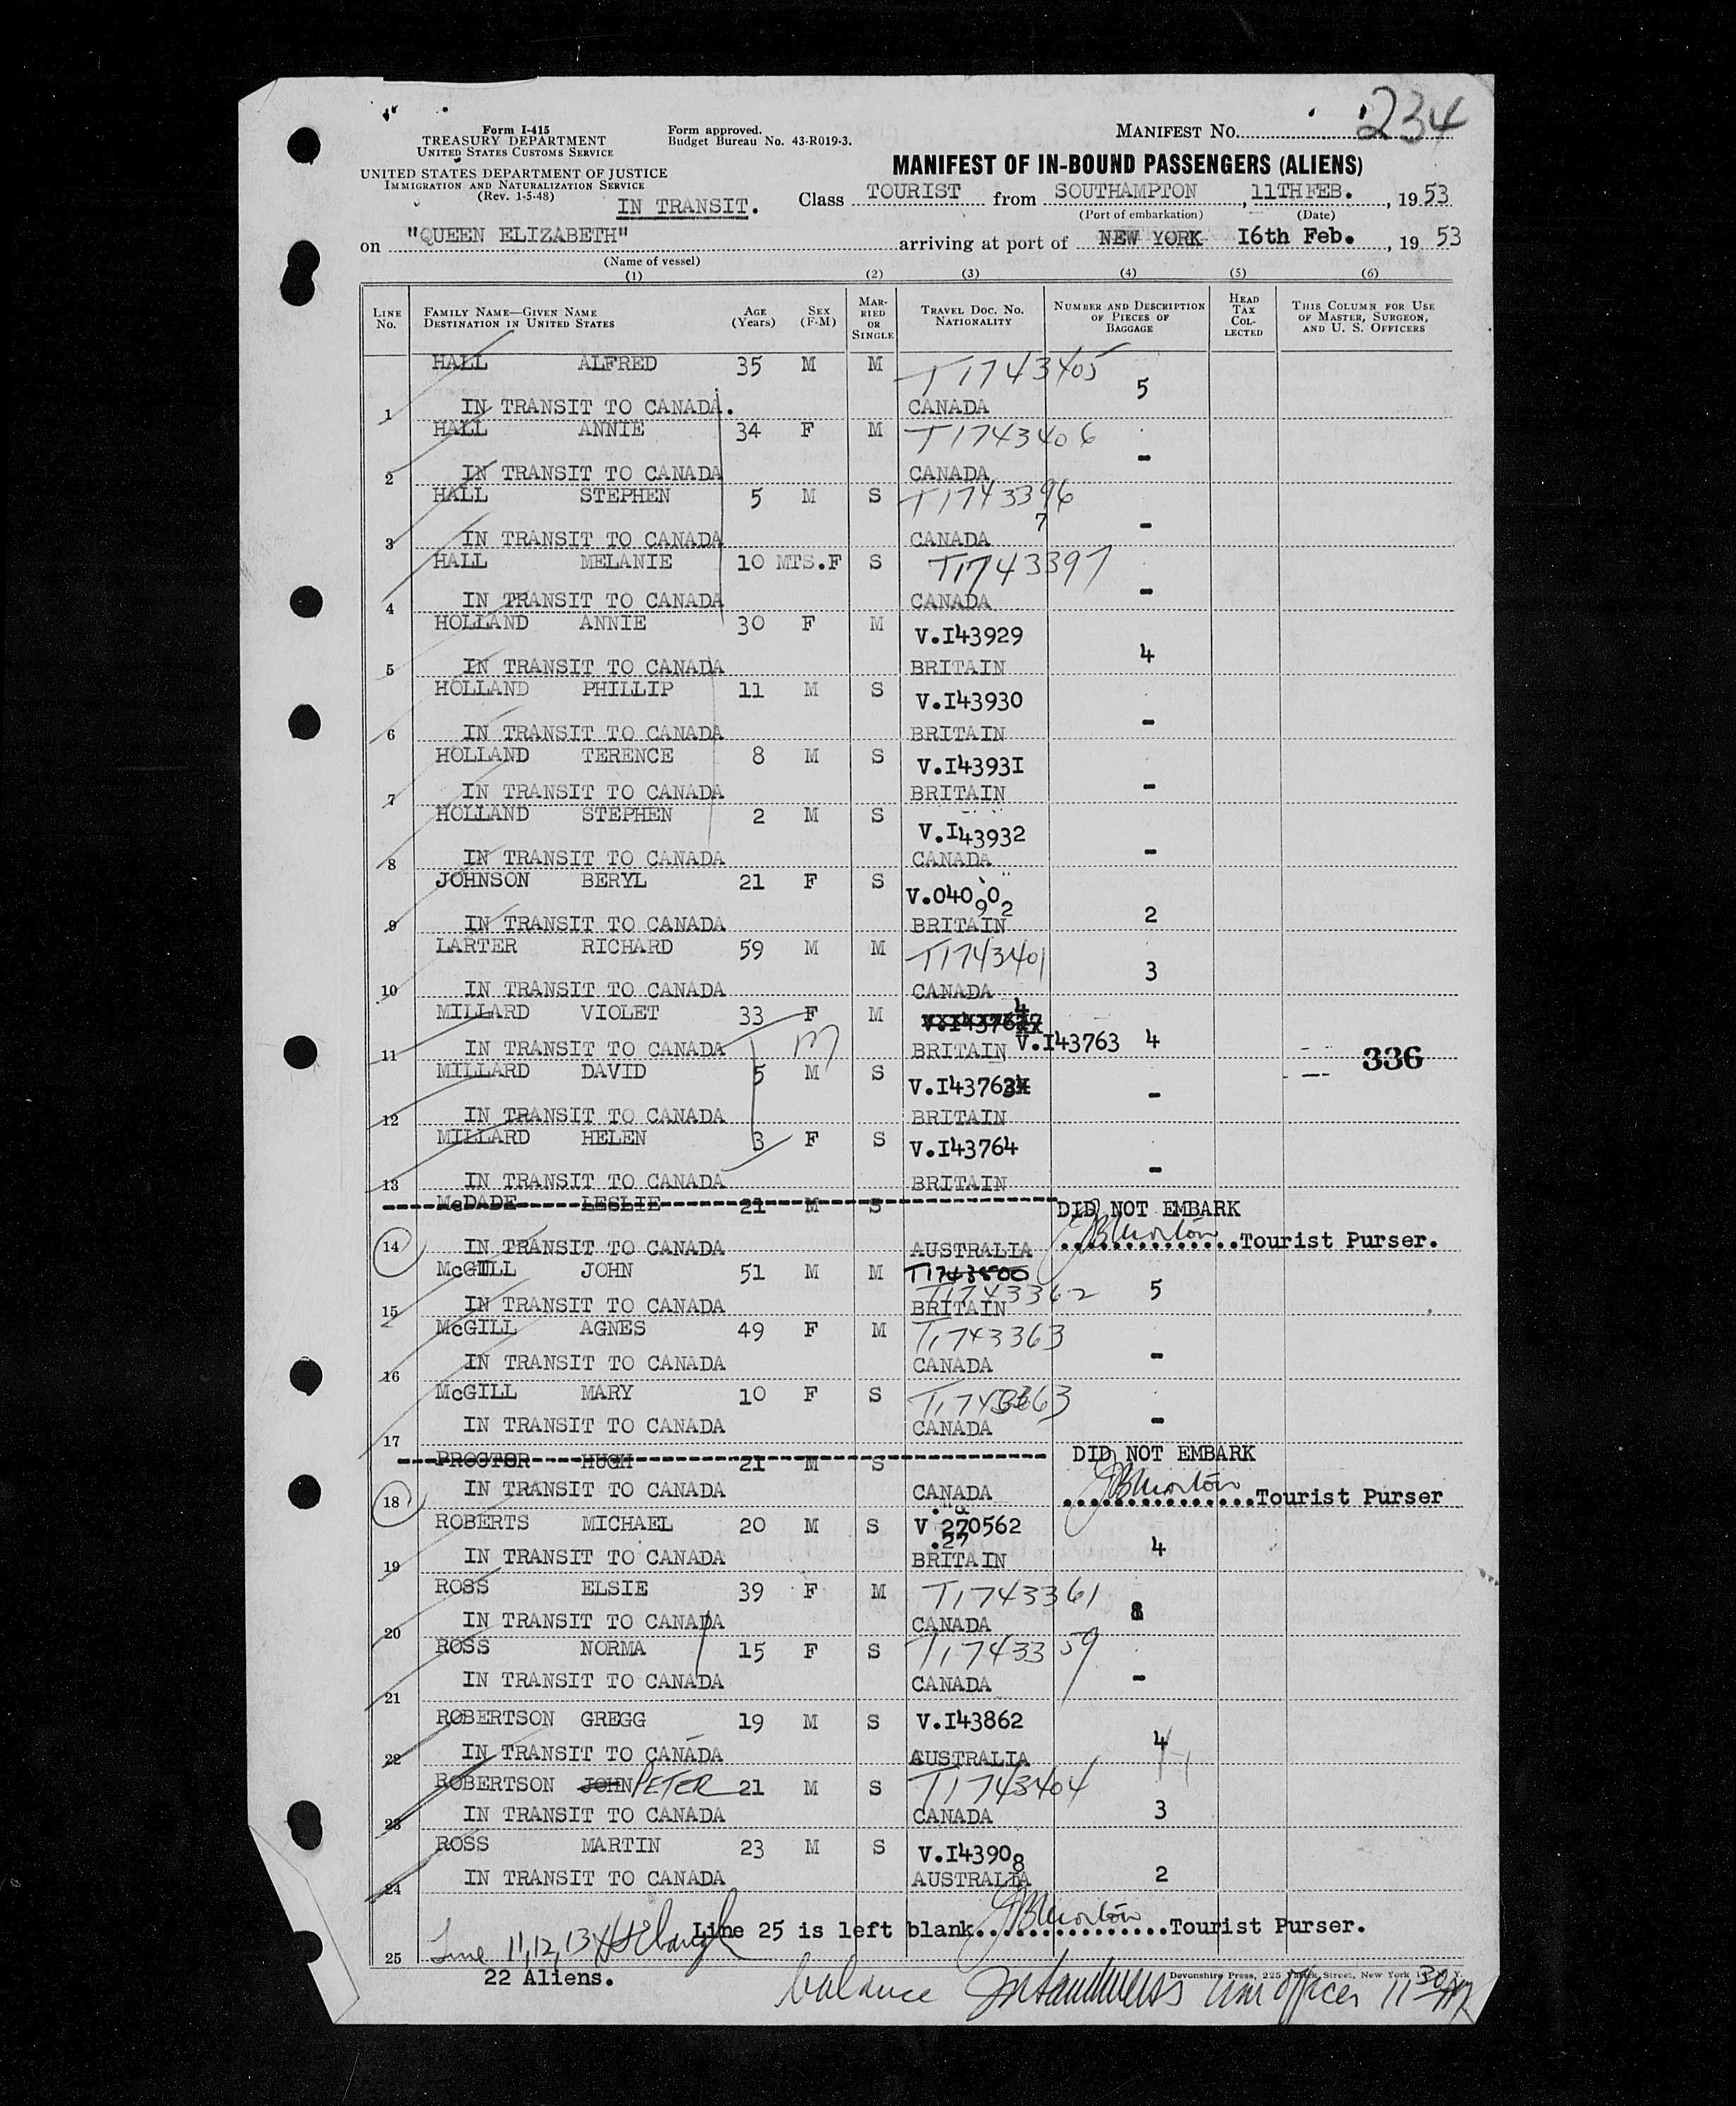 234
Form I-415
TREASURY DEPARTMENT
UNITED STATES CUSTOMS SERVICE
UNITED STATES DEPARTMENT OF JUSTICE
IMMIGRATION AND NATURALIZATION SERVICE
(Rev. 1-5-48)
Form approved.
Budget Bureau No. 43-R019-3.
MANIFEST NO.
MANIFEST OF IN-BOUND PASSENGERS (ALIENS)
IN TRANSIT. Class TOURIST from SOUTHAMPTON, 11TH FEB., 1953
(Port of embarkation) (Date)
on "QUEEN ELIZABETH" arriving at port of NEW YORK 16th Feb., 1953
(Name of vessel)
(1) (2) (3) (4) (5) (6)
LINE NO. FAMILY NAME—GIVEN NAME DESTINATION IN UNITED STATES AGE (Years) SEX (F-M) MARRIED OR SINGLE TRAVEL DOC. NO. NATIONALITY NUMBER AND DESCRIPTION OF PIECES OF BAGGAGE HEAD TAX COLLECTED THIS COLUMN FOR USE OF MASTER, SURGEON, AND U. S. OFFICERS
HALL ALFRED 35 M M T1743405 5
1 IN TRANSIT TO CANADA. CANADA
HALL ANNIE 34 F M T1743406 -
2 IN TRANSIT TO CANADA CANADA
HALL STEPHEN 5 M S T1743396 -
7
3 IN TRANSIT TO CANADA CANADA
HALL MELANIE 10 MTS.F S T1743397 -
4 IN TRANSIT TO CANADA CANADA
HOLLAND ANNIE 30 F M V.I43929 4
5 IN TRANSIT TO CANADA BRITAIN
HOLLAND PHILLIP 11 M S V.I43930 -
6 IN TRANSIT TO CANADA BRITAIN
HOLLAND TERENCE 8 M S V.I4393I -
7 IN TRANSIT TO CANADA BRITAIN
HOLLAND STEPHEN 2 M S V.I43932 -
8 IN TRANSIT TO CANADA CANADA
JOHNSON BERYL 21 F S V.040902 2
9 IN TRANSIT TO CANADA BRITAIN
LARTER RICHARD 59 M M T1743401 3
10 IN TRANSIT TO CANADA CANADA
MILLARD VIOLET 33 F M
11 IN TRANSIT TO CANADA M BRITAIN V.I43763 4 336
MILLARD DAVID 5 M S V.I43763 -
12 IN TRANSIT TO CANADA BRITAIN
MILLARD HELEN 3 F S V.I43764 -
13 IN TRANSIT TO CANADA BRITAIN
McDADE LESLIE 21 M S DID NOT EMBARK
14 IN TRANSIT TO CANADA AUSTRALIA JB Morton Tourist Purser.
McGILL JOHN 51 M M T1743500 T1743362 5
15 IN TRANSIT TO CANADA BRITAIN
McGILL AGNES 49 F M T1743363 -
16 IN TRANSIT TO CANADA CANADA
McGILL MARY 10 F S T1743363 -
17 IN TRANSIT TO CANADA CANADA
PROCTOR HUGH 21 M S DID NOT EMBARK
18 IN TRANSIT TO CANADA CANADA JB Morton Tourist Purser
ROBERTS MICHAEL 20 M S V 270562 4
.27
19 IN TRANSIT TO CANADA BRITAIN
ROSS ELSIE 39 F M T1743361 8
20 IN TRANSIT TO CANADA CANADA
ROSS NORMA 15 F S T1743359 -
21 IN TRANSIT TO CANADA CANADA
ROBERTSON GREGG 19 M S V.I43862 4
22 IN TRANSIT TO CANADA AUSTRALIA
ROBERTSON JOHN PETER 21 M S T1743404 3
23 IN TRANSIT TO CANADA CANADA
ROSS MARTIN 23 M S V.I43908 2
24 IN TRANSIT TO CANADA AUSTRALIA
Line 25 is left blank. JB Morton Tourist Purser.
25 Line 11, 12, 13
22 Aliens.
Devonshire Press, 225 Varick Street, New York
balance Imm Officer 11 30 AM